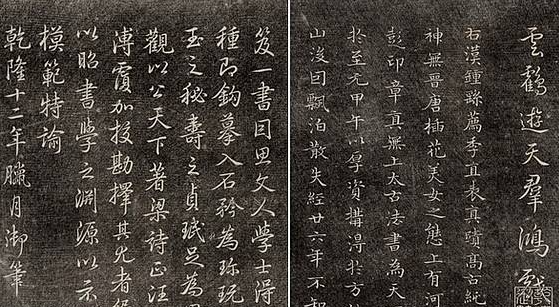 雲鶴遊天羣鴻戲
右漢鍾繇薦季直表真蹟高古純
神無晉唐插花美女之態上有河
彭印章真無上太古法書為天
於至元甲午以厚資購得於方
山後回飄泊散失經廿六年不知
笈一書回思文人學士得
種即鈎摹入石矜為珎玩
玉之秘壽之貞珉足為
觀以公天下著梁詩正汪
溥覆加挍勘擇其尤者
以昭書學之淵源以示
模範特諭
乾隆十二年臘月御筆